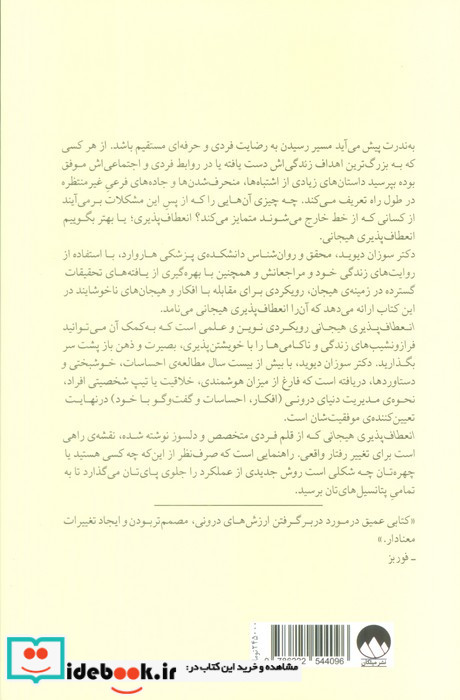 به‌ندرت پیش می‌آید مسیر رسیدن به رضایت فردی و حرفه‌ای مستقیم باشد. از هر کسی
که به بزرگ‌ترین اهداف زندگی‌اش دست یافته یا در روابط فردی و اجتماعی‌اش موفق
بوده بپرسید داستان‌های زیادی از اشتباه‌ها، منحرف‌شدن‌ها و جاده‌های فرعیِ غیرمنتظره
در طول راه تعریف می‌کند. چه چیزی آن‌هایی را که از پسِ این مشکلات برمی‌آیند
از کسانی که از خط خارج می‌شوند متمایز می‌کند؟ انعطاف‌پذیری؛ یا بهتر بگوییم
انعطاف‌پذیری هیجانی.
دکتر سوزان دیوید، محقق و روان‌شناس دانشکده‌ی پزشکی هاروارد، با استفاده از
روایت‌های زندگی خود و مراجعانش و همچنین با بهره‌گیری از یافته‌های تحقیقات
گسترده در زمینه‌ی هیجان، رویکردی برای مقابله با افکار و هیجان‌های ناخوشایند در
این کتاب ارائه می‌دهد که آن‌را انعطاف‌پذیری هیجانی می‌نامد.
انعطاف‌پذیری هیجانی رویکردی نوین و علمی است که به‌کمک آن می‌توانید
فرازونشیب‌های زندگی و ناکامی‌ها را با خویشتن‌پذیری، بصیرت و ذهن باز پشت سر
بگذارید. دکتر سوزان دیوید، با بیش از بیست سال مطالعه‌ی احساسات، خوشبختی و
دستاوردها، دریافته است که فارغ از میزان هوشمندی، خلاقیت یا تیپ شخصیتی افراد،
نحوه‌ی مدیریت دنیای درونی (افکار، احساسات و گفت‌وگو با خود) درنهایت
تعیین‌کننده‌ی موفقیت‌شان است.
انعطاف‌پذیری هیجانی که از قلم فردی متخصص و دلسوز نوشته شده، نقشه‌ی راهی
است برای تغییر رفتار واقعی. راهنمایی است که صرف‌نظر از این‌که چه کسی هستید یا
چهره‌تان چه شکلی است روش جدیدی از عملکرد را جلوی پای‌تان می‌گذارد تا به
تمامیِ پتانسیل‌های‌تان برسید.
«کتابی عمیق درمورد دربرگرفتن ارزش‌های درونی، مصمم‌تربودن و ایجاد تغییرات
معنادار.»
ـ فوربز
۲۴۵۰۰۰ تومان
نشر میلکان
9 786222 544096
idebook.ir
مشاهده و خرید این کتاب در: